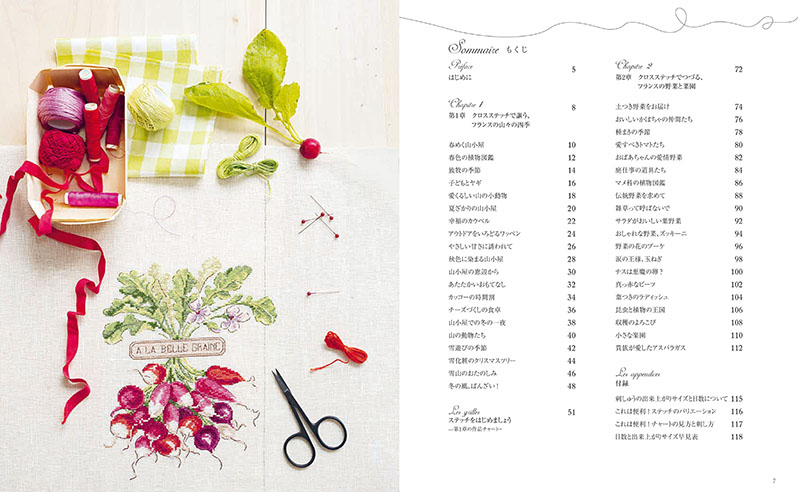 A LA BELLE GRAINE
Sommaire もくじ
Préface
はじめに 5
Chapitre 1 8
第1章 クロスステッチで謳う、
フランスの山々の四季
春めく山小屋 10
春色の植物図鑑 12
放牧の季節 14
子どもとヤギ 16
愛くるしい山の小動物 18
夏ざかりの山小屋 20
幸福のカウベル 22
アウトドアをいろどるワッペン 24
やさしい甘さに誘われて 26
秋色に染まる山小屋 28
山小屋の窓辺から 30
あたたかいおもてなし 32
カッコーの時間割 34
チーズづくしの食卓 36
山小屋での冬の一夜 38
山の動物たち 40
雪遊びの季節 42
雪化粧のクリスマスツリー 44
雪山のおたのしみ 46
冬の風、ばんざい! 48
Les grilles 51
ステッチをはじめましょう
—第1章の作品チャート—
Chapitre 2 72
第2章 クロスステッチでつづる、
フランスの野菜と菜園
土つき野菜をお届け 74
おいしいかぼちゃの仲間たち 76
種まきの季節 78
愛すべきトマトたち 80
おばあちゃんの愛情野菜 82
庭仕事の道具たち 84
マメ科の植物図鑑 86
伝統野菜を求めて 88
雑草って呼ばないで 90
サラダがおいしい葉野菜 92
おしゃれな野菜、ズッキーニ 94
野菜の花のブーケ 96
涙の王様、玉ねぎ 98
ナスは悪魔の卵? 100
真っ赤なビーツ 102
葉つきのラディッシュ 104
昆虫と植物の王国 106
収穫のよろこび 108
小さな楽園 110
貴族が愛したアスパラガス 112
Les appendices
付録
刺しゅうの出来上がりサイズと目数について 115
これは便利!ステッチのバリエーション 116
これは便利!チャートの見方と刺し方 117
目数と出来上がりサイズ早見表 118
7